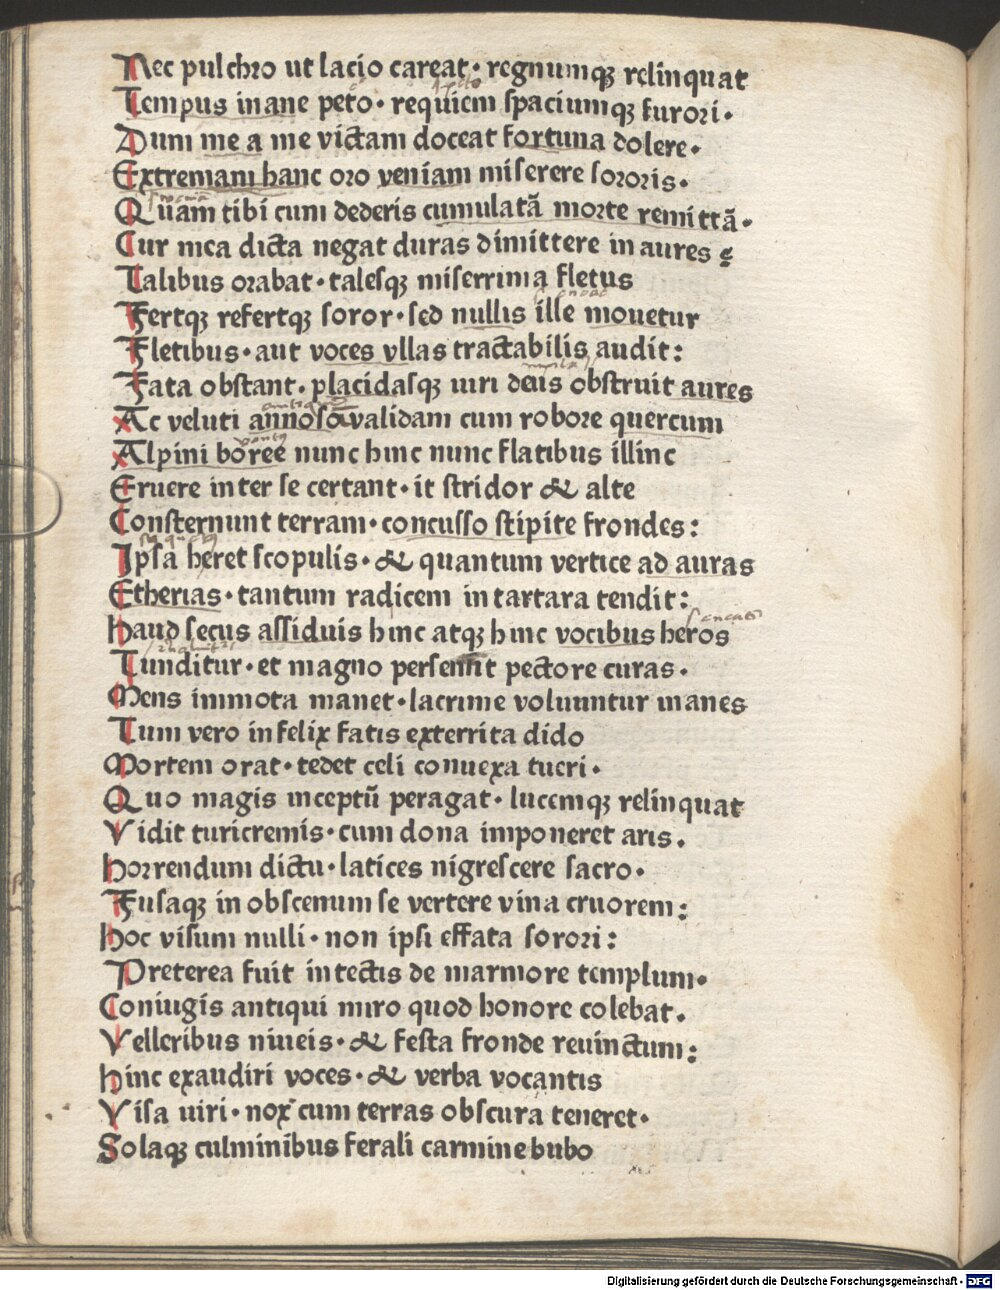 Nec pulchro ut lacio careat · regnumqꝫ relinquat
Tempus inane peto · requiem spaciumqꝫ furori ·
Dum me a me victam doceat fortuna dolere ·
Extremam hanc oro veniam miserere sororis ·
Quam tibi cum dederis cumulatā morte remittā ·
Cur mea dicta negat duras dimittere in aures ?
Talibus orabat · talesqꝫ miserrima fletus
Fertqꝫ refertqꝫ soror · sed nullis ille mouetur
Fletibus · aut voces vllas tractabilis audit :
Fata obstant · placidasqꝫ uiri deus obstruit aures
Ac veluti annosā validam cum robore quercum
Alpini boreę nunc hinc nunc flatibus illinc
Eruere inter se certant · it stridor & alte
Consternunt terram · concusso stipite frondes :
Ipsa heret scopulis · & quantum vertice ad auras
Etherias · tantum radicem in tartara tendit :
Haud secus assiduis hinc atqꝫ hinc vocibus heros
Tunditur · et magno persentit pectore curas ·
Mens immota manet · lacrime voluuntur inanes
Tum vero infelix fatis exterrita dido
Mortem orat · tedet celi conuexa tueri ·
Quo magis inceptū peragat · lucemqꝫ relinquat
Vidit turicremis · cum dona imponeret aris .
Horrendum dictu · latices nigrescere sacro ·
Fusaqꝫ in obscenum se vertere vina cruorem :
Hoc visum nulli · non ipsi effata sorori :
Preterea fuit in tectis de marmore templum ·
Coniugis antiqui miro quod honore colebat .
Velleribus niueis · & festa fronde reuinctum :
Hinc exaudiri voces · & verba vocantis
Visa uiri · nox cum terras obscura teneret ·
Solaqꝫ culminibus ferali carmine bubo
Digitalisierung gefördert durch die Deutsche Forschungsgemeinschaft - DFG